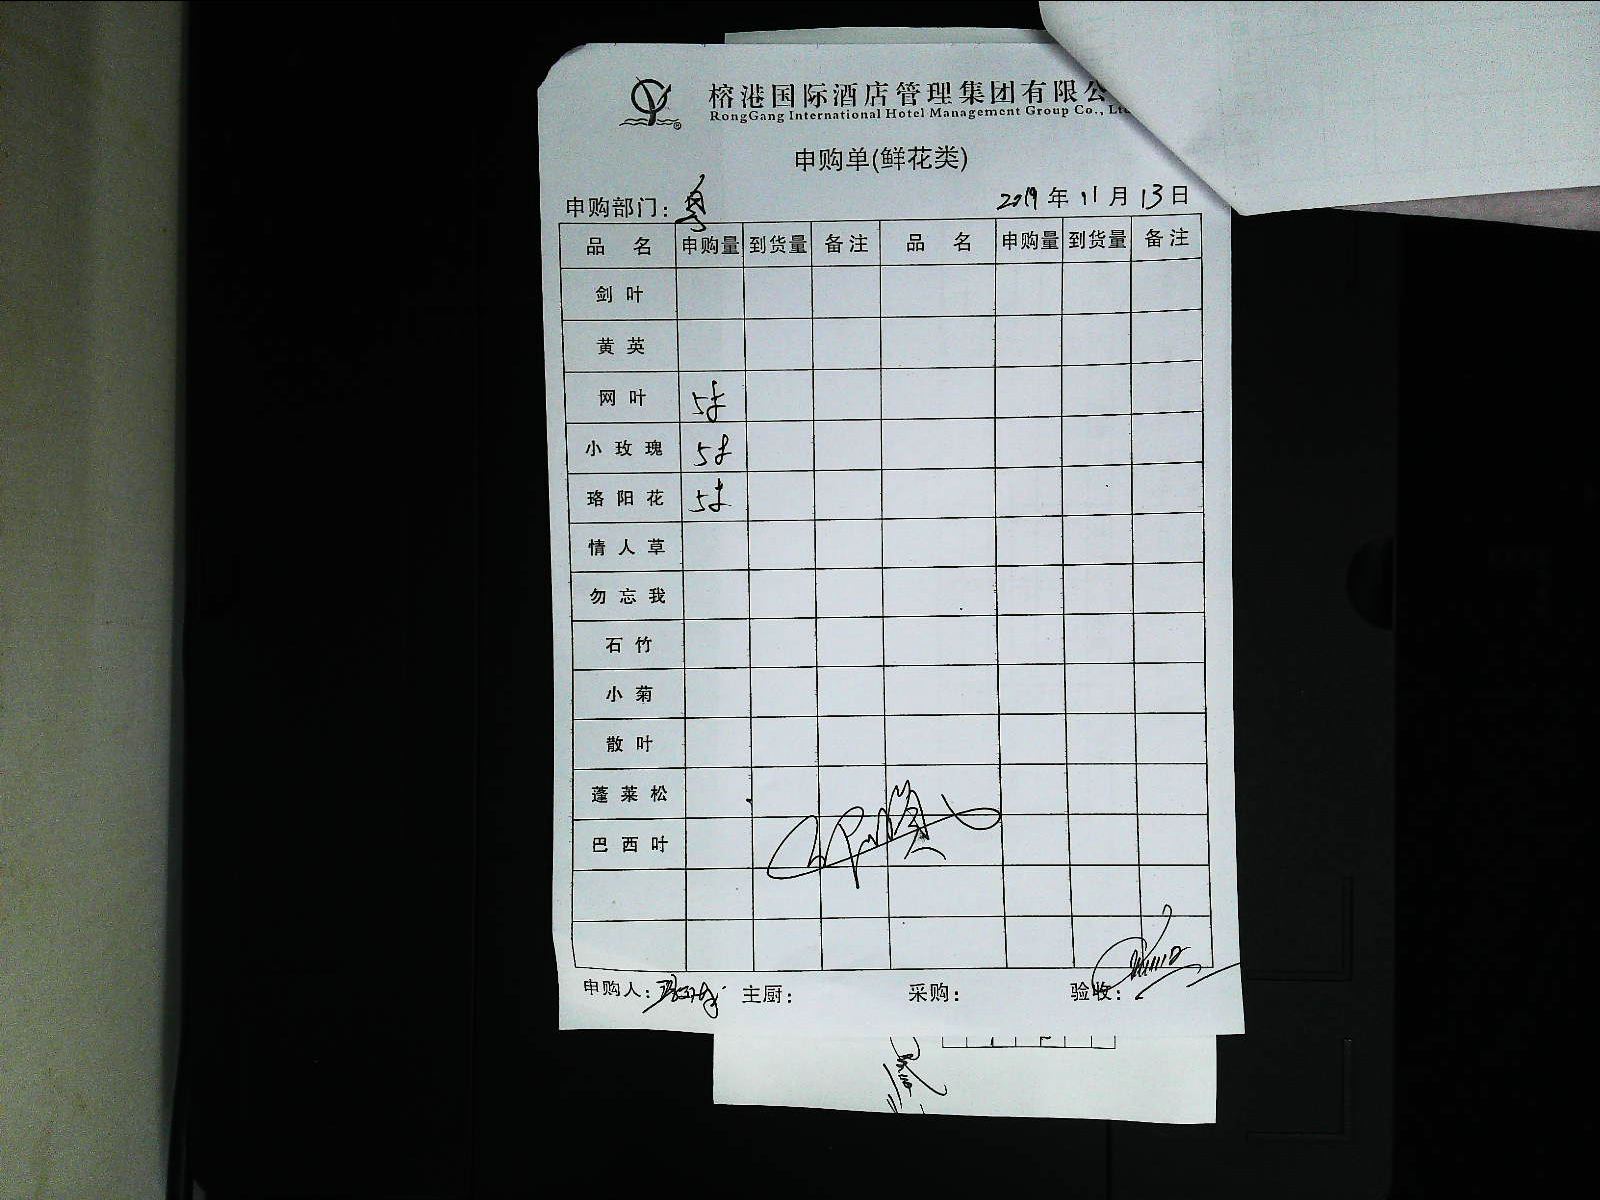 榕港国际酒店管理集团有限公
RongGang International Hotel Management Group Co., Ltd
申购单(鲜花类)
申购部门: 粤 2019年11月13日
品 名 申购量 到货量 备注 品 名 申购量 到货量 备注
剑叶
黄英
网叶 5扎
小玫瑰 5扎
珞阳花 5扎
情人草
勿忘我
石竹
小菊
散叶
蓬莱松
巴西叶
申购人: 主厨: 采购: 验收: